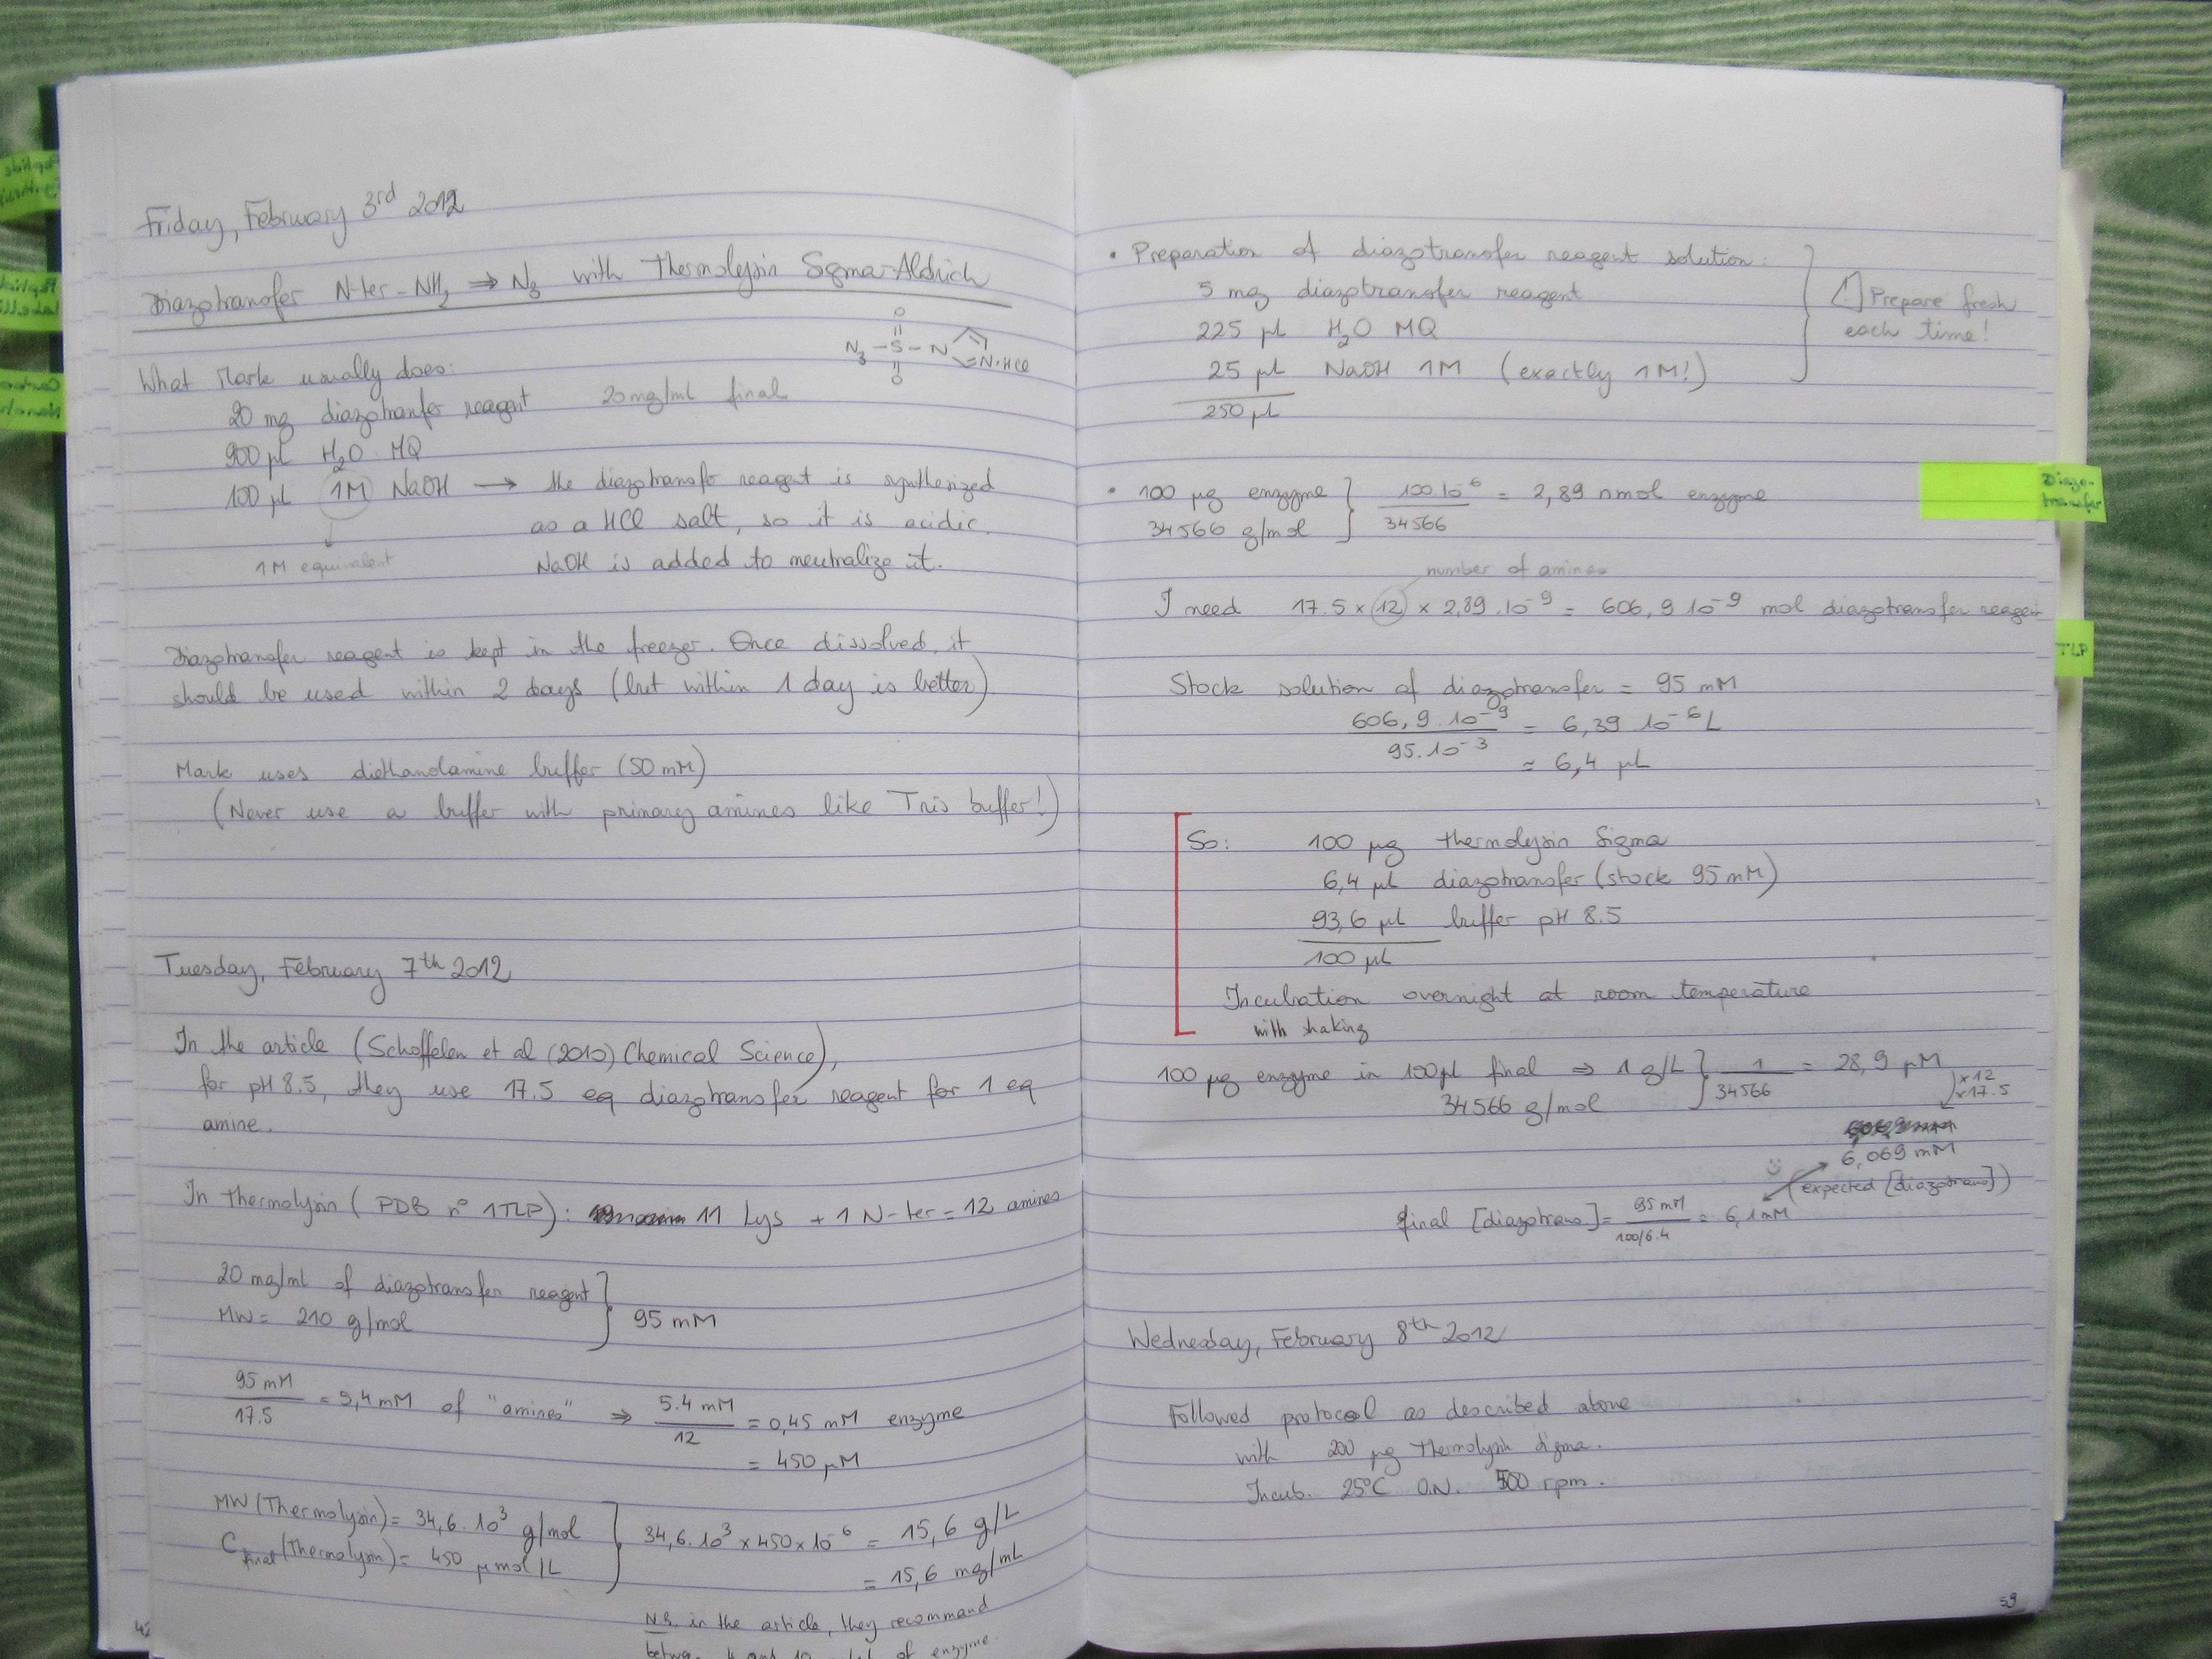 Friday, February 3rd 2012
Diazotransfer N-ter-NH2 ⇒ N3 with Thermolysin Sigma-Aldrich
O
N3 - S - N N·HCl
O
What Mark usually does:
20 mg diazotranfer reagent 20mg/ml final
900 µl H2O MQ
100 µl 1M NaOH → the diazotransfer reagent is synthesized
as a HCl salt, so it is acidic.
1M equivalent NaOH is added to neutralize it.
Diazotransfer reagent is kept in the freezer. Once dissolved, it
should be used within 2 days (but within 1 day is better)
Mark uses diethanolamine buffer (50 mM)
(Never use a buffer with primary amines like Tris buffer!)
Tuesday, February 7th 2012
In the article (Schoffelen et al (2010) Chemical Science),
for pH 8.5, they use 17.5 eq diazotransfer reagent for 1 eq
amine.
In thermolysin (PDB n° 1TLP): 11 Lys + 1 N-ter = 12 amines
20 mg/ml of diazotransfer reagent
MW = 210 g/mol } 95 mM
95 mM / 17.5 = 5,4 mM of "amines" ⇒ 5.4 mM / 12 = 0,45 mM enzyme
= 450 µM
MW (Thermolysin) = 34,6.10^3 g/mol } 34,6.10^3 × 450 × 10^-6 = 15,6 g/L
C final (Thermolysin) = 450 µmol/L = 15,6 mg/mL
N.B. in the article, they recommand
of enzyme.
42
• Preparation of diazotransfer reagent solution:
5 mg diazotransfer reagent
225 µl H2O MQ
25 µl NaOH 1M (exactly 1M!)
250 µL
! Prepare fresh
each time!
• 100 µg enzyme } 100.10^-6 / 34566 = 2,89 nmol enzyme
34566 g/mol
number of amines
I need 17.5 × 12 × 2,89.10^-9 = 606,9 10^-9 mol diazotransfer reagent
Stock solution of diazotransfer = 95 mM
606,9.10^-9 / 95.10^-3 = 6,39 10^-6 L
≈ 6,4 µL
So: 100 µg thermolysin Sigma
6,4 µl diazotransfer (stock 95 mM)
93,6 µl buffer pH 8.5
100 µl
Incubation overnight at room temperature
with shaking
100 µg enzyme in 100µl final ⇒ 1 g/L } 1 / 34566 = 28,9 µM
34566 g/mol
×12
×17.5
6,069 mM
(expected [diazotrans])
final [diazotrans] = 95 mM / 100/6.4 = 6,1 mM
Wednesday, February 8th 2012
Followed protocol as described above
with 200 µg Thermolysin Sigma.
Incub. 25°C O.N. 500 rpm.
59
Diazo-
transfer
TLP